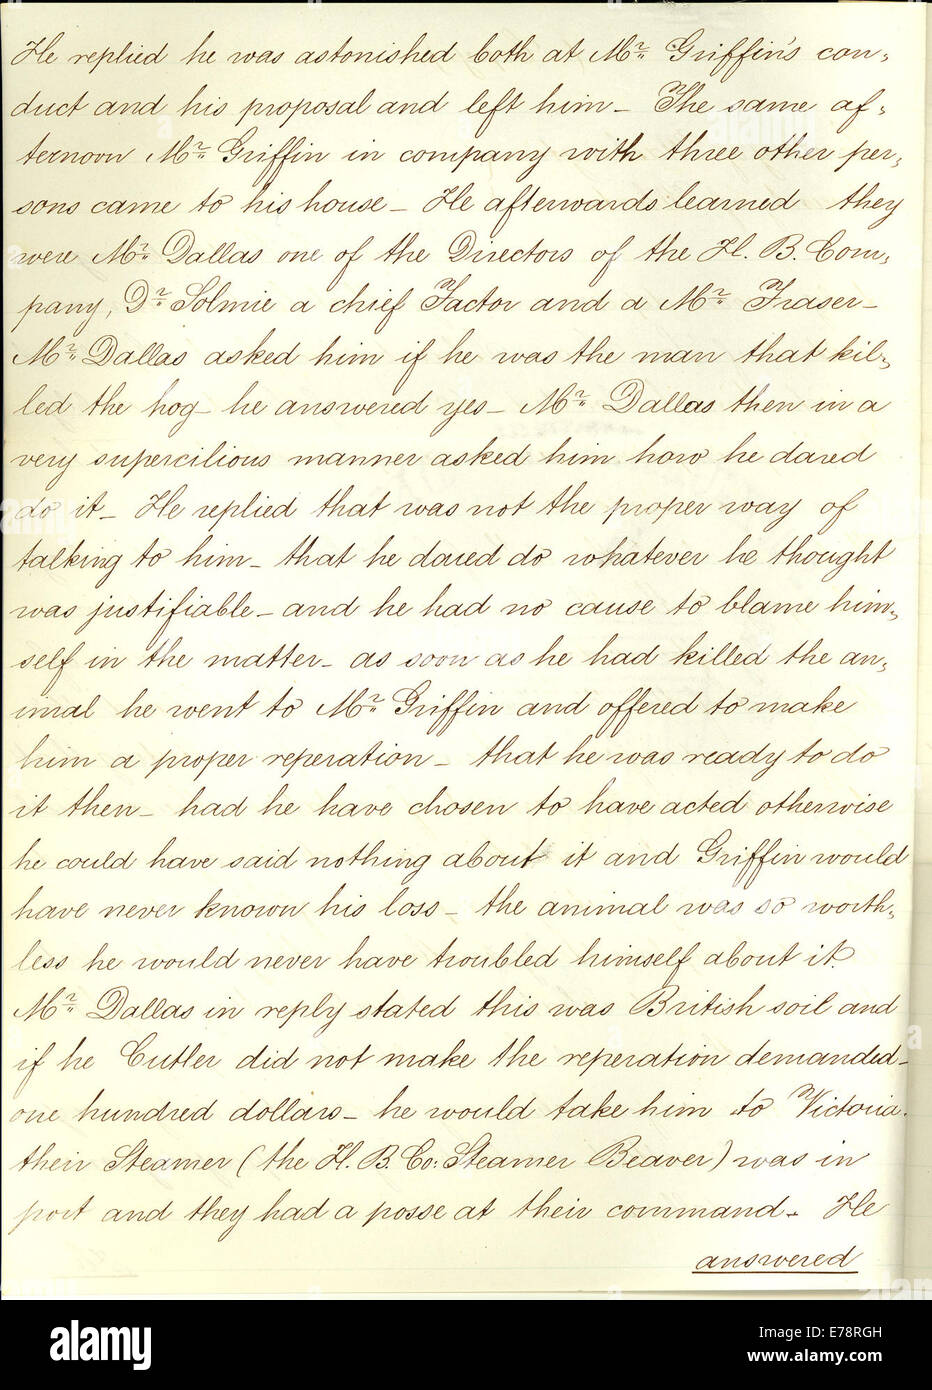 He replied he was astonished both at Mr. Griffin's con=
duct and his proposal and left him_ The same af=
ternoon Mr. Griffin in company with three other per=
sons came to his house_ He afterwards learned they
were Mr. Dallas one of the Directors of the H. B. Com=
pany, Dr. Tolmie a chief Factor and a Mr. Fraser_
Mr. Dallas asked him if he was the man that kil=
led the hog_ he answered yes_ Mr. Dallas then in a
very supercilious manner asked him how he dared
do it_ He replied that was not the proper way of
talking to him_ that he dared do whatever he thought
was justifiable_ and he had no cause to blame him=
self in the matter_ as soon as he had killed the an=
imal he went to Mr. Griffin and offered to make
him a proper reperation_ that he was ready to do
it then_ had he have chosen to have acted otherwise
he could have said nothing about it and Griffin would
have never known his loss_ the animal was so worth=
less he would never have troubled himself about it.
Mr. Dallas in reply stated this was British soil and
if he Cutler did not make the reperation demanded_
one hundred dollars_ he would take him to Victoria.
their Steamer (the H. B. Co: Steamer Beaver) was in
port and they had a posse at their command_ He
answered
alamy
Image ID: E78RGH
www.alamy.com